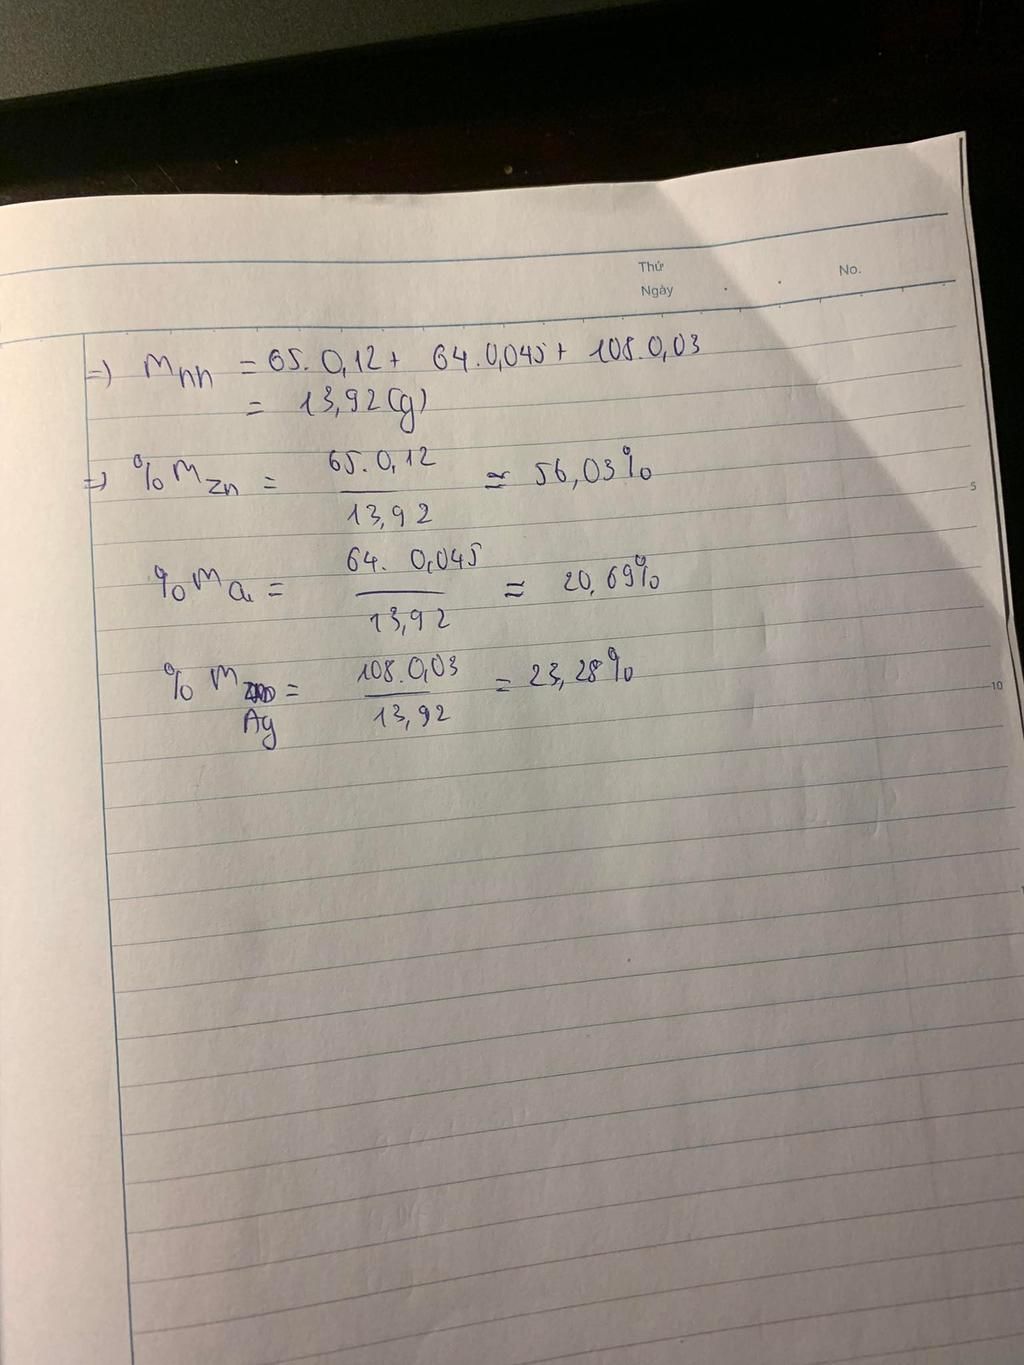 Thứ
Ngày . .
No.
=) mhh = 65. 0,12 + 64. 0,045 + 108. 0,03
= 13,92 (g)
=) % m Zn = 65. 0,12 / 13,92 ≃ 56,03%
5
% m Cu = 64. 0,045 / 13,92 ≃ 20,69%
% m Ag = 108. 0,03 / 13,92 = 23,28%
10